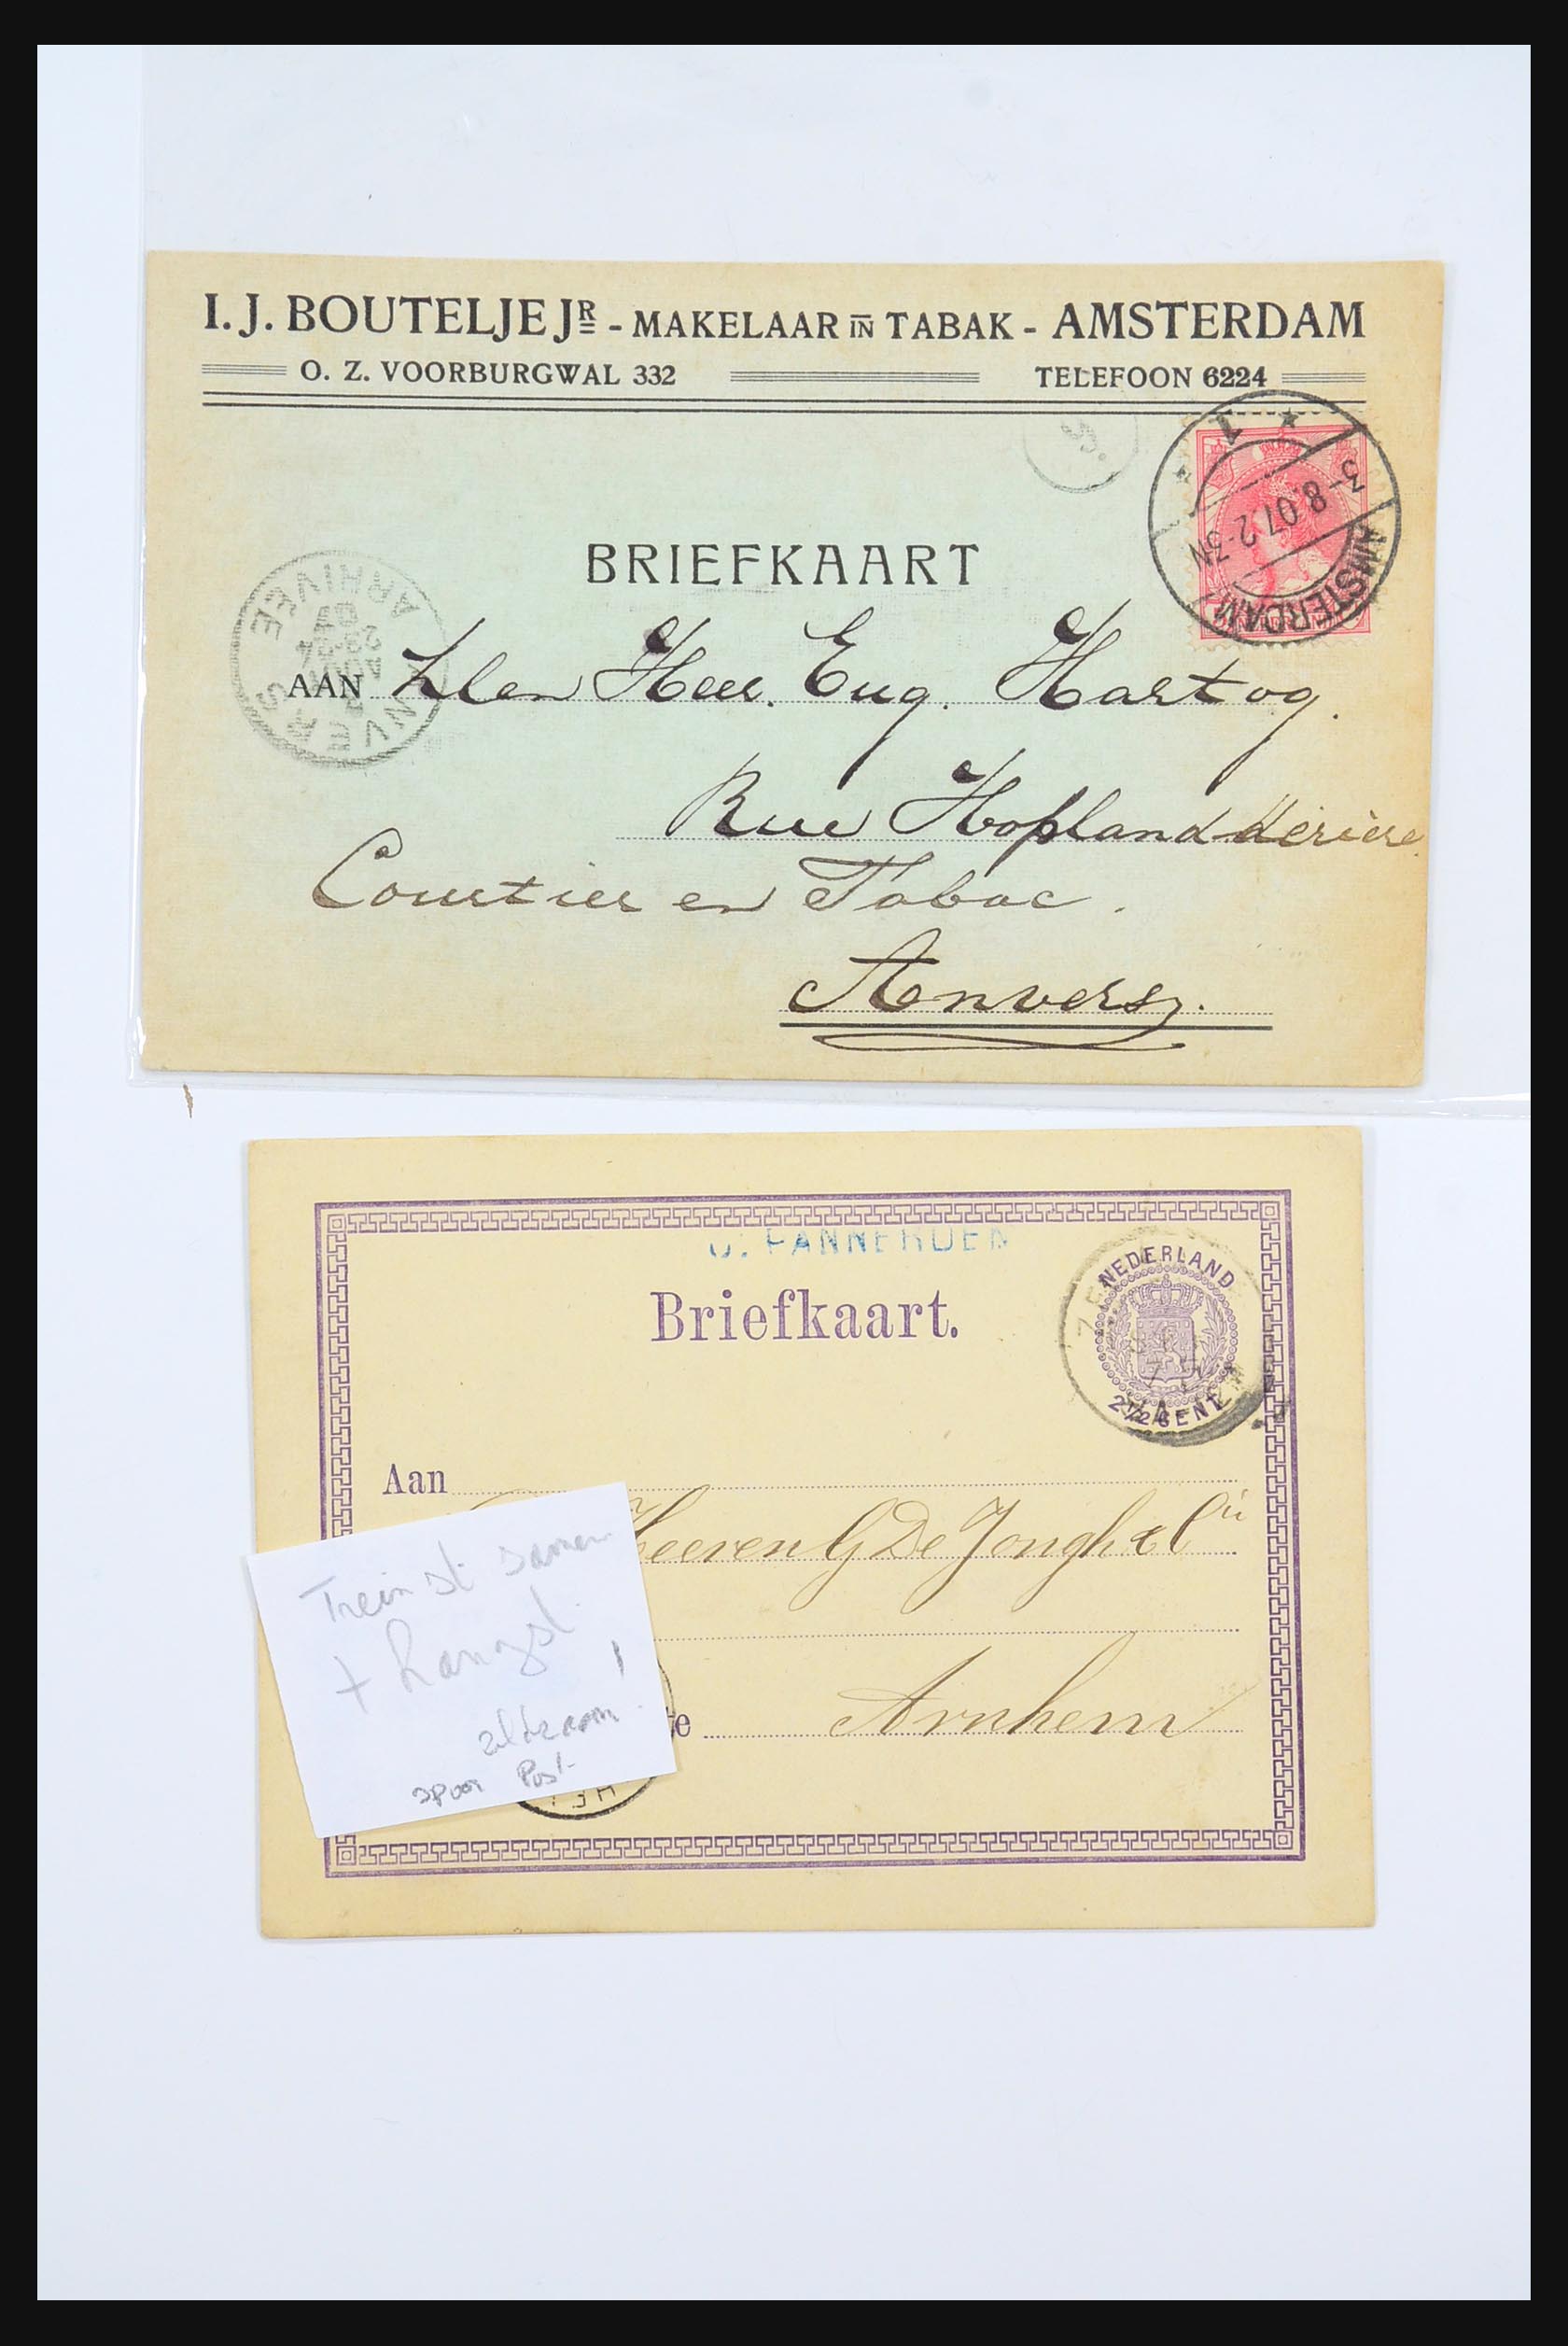 I. J. BOUTELJE JR - MAKELAAR IN TABAK - AMSTERDAM
O. Z. VOORBURGWAL 332 TELEFOON 6224
1
3-8.07.2-3N
AMSTERDAM
BRIEFKAART
ARRIVEE
ANVERS
AAN Den Heer. Eug. Hartog.
Rue Hopland derière
Courtier en Tabac.
Anvers.
PANNERDEN
NEDERLAND
2½ CENT
Briefkaart.
Aan
Heeren G De Jongh & Cie
te Arnhem
Trein st. samen
+ Langst.
zeldzaam!
spoor Post-